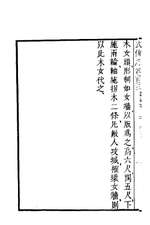 木女頭形制如女牆以版爲之高六尺闊五尺下
施兩輪軸施拐木二條凡敵人攻城摧壞女牆則
以此木女代之